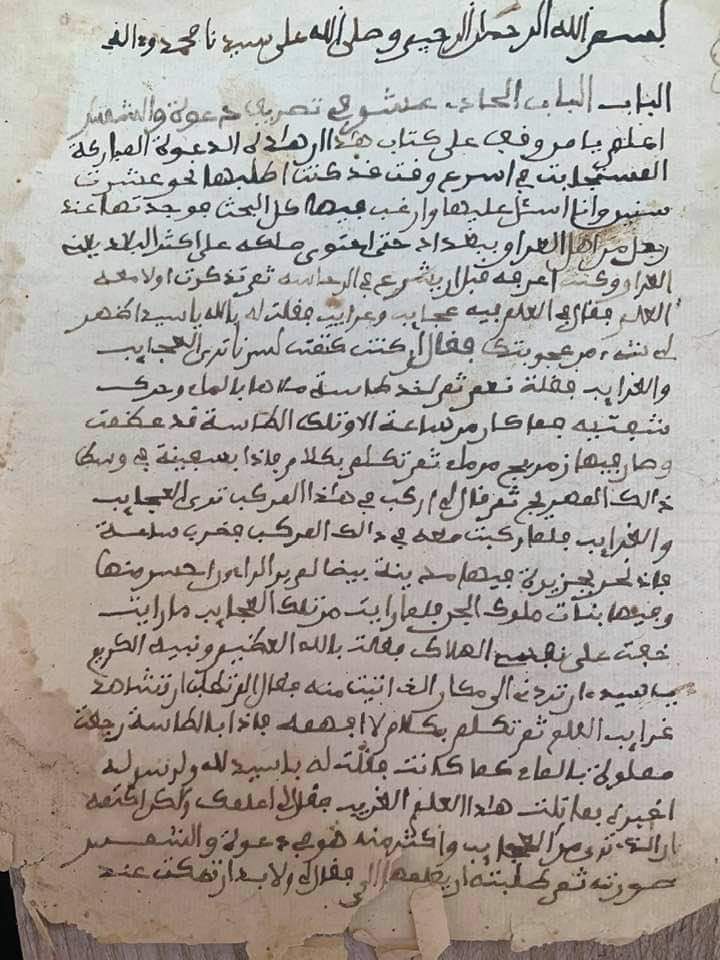 بسم الله الرحمان الرحيم وصلى الله على سيدنا محمد وءاله
الباب الباب الحادى عشر في تصريف دعوة والشمس
اعلم يا من وقف على كتاب هاذا ان هاذه الدعوة المباركة
المستجابة في اسرع وقت قد كنت اطلبها نحو عشرت
سنين وانا اسئل عليها وارغب فيها كل البحث فوجدتها عند
رجل من اهل العراق وبغداد حتى احتوى ملكه على اكثر البلاد يعنه
العراق وكنت اعرفه قبل ان يشرع في الرياسه ثم تذكرت اولا معه
العلم فقال لي العلم فيه عجايب وغرايب فقلت له بالله يا سيد اظهر
لي شيء من عجوبتك فقال ان كنت كتمت لسرنا ترى العجايب
والغرايب فقلت نعم ثم اخذ طاسة ملاها بالماء وحرك
شفتيه فما كان من ساعة الا وتلك الطاسة قد عظمت
وصار فيها زمريج من ماء ثم تكلم بكلام فاذا بسفينة في وسط
ذالك الصهريج ثم قال لي اركب في هاذا المركب ترى العجايب
والغرايب فلما ركبت معه في ذالك المركب فغرب ساعة
فاذا نحن بجزيرة فيها مدينة بيضا لم ير الراءون احسن منها
وفيها بنات ملوك الجن فلما رايت من تلك العجايب ما رايت
خفت على نفسي الهلاك فقلت بالله العظيم ونبيه الكريم
يا سيد ان تردني الى مكان الذ اتيت منه فقال الم تطلب ان تشاهد
غرايب العلم ثم تكلم بكلام لا افهمه فاذا بالطاسة رجعت
مملوة بالماء كما كانت فقلت له يا سيد لله ولرسوله
اخبرني بما نلت هاذا العلم الغريب فقال لي اعلمك ولكن اكتمه
ان الذي ترى من العجايب واكثر منه هو في دعوة والشمس
صورته ثم طلبته ان يعلمها الي فقال لي ولا بد ان تمكث عند